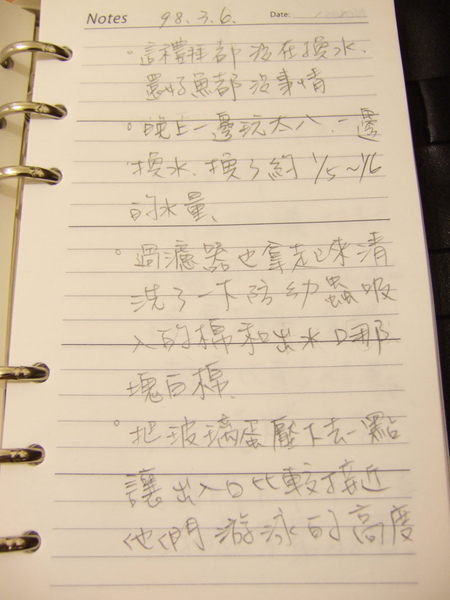 Notes 98.3.6. Date:
。這禮拜都沒在換水.
還好魚都沒事情
。晚上一邊玩太八.一邊
換水.換了約1/5~1/6
的水量.
。過濾器也拿起來清
洗了一下防幼蟲吸
入的棉和出水口那
塊白棉.
。把玻璃蛋壓下去一點
讓出入口比較接近
他們游泳的高度